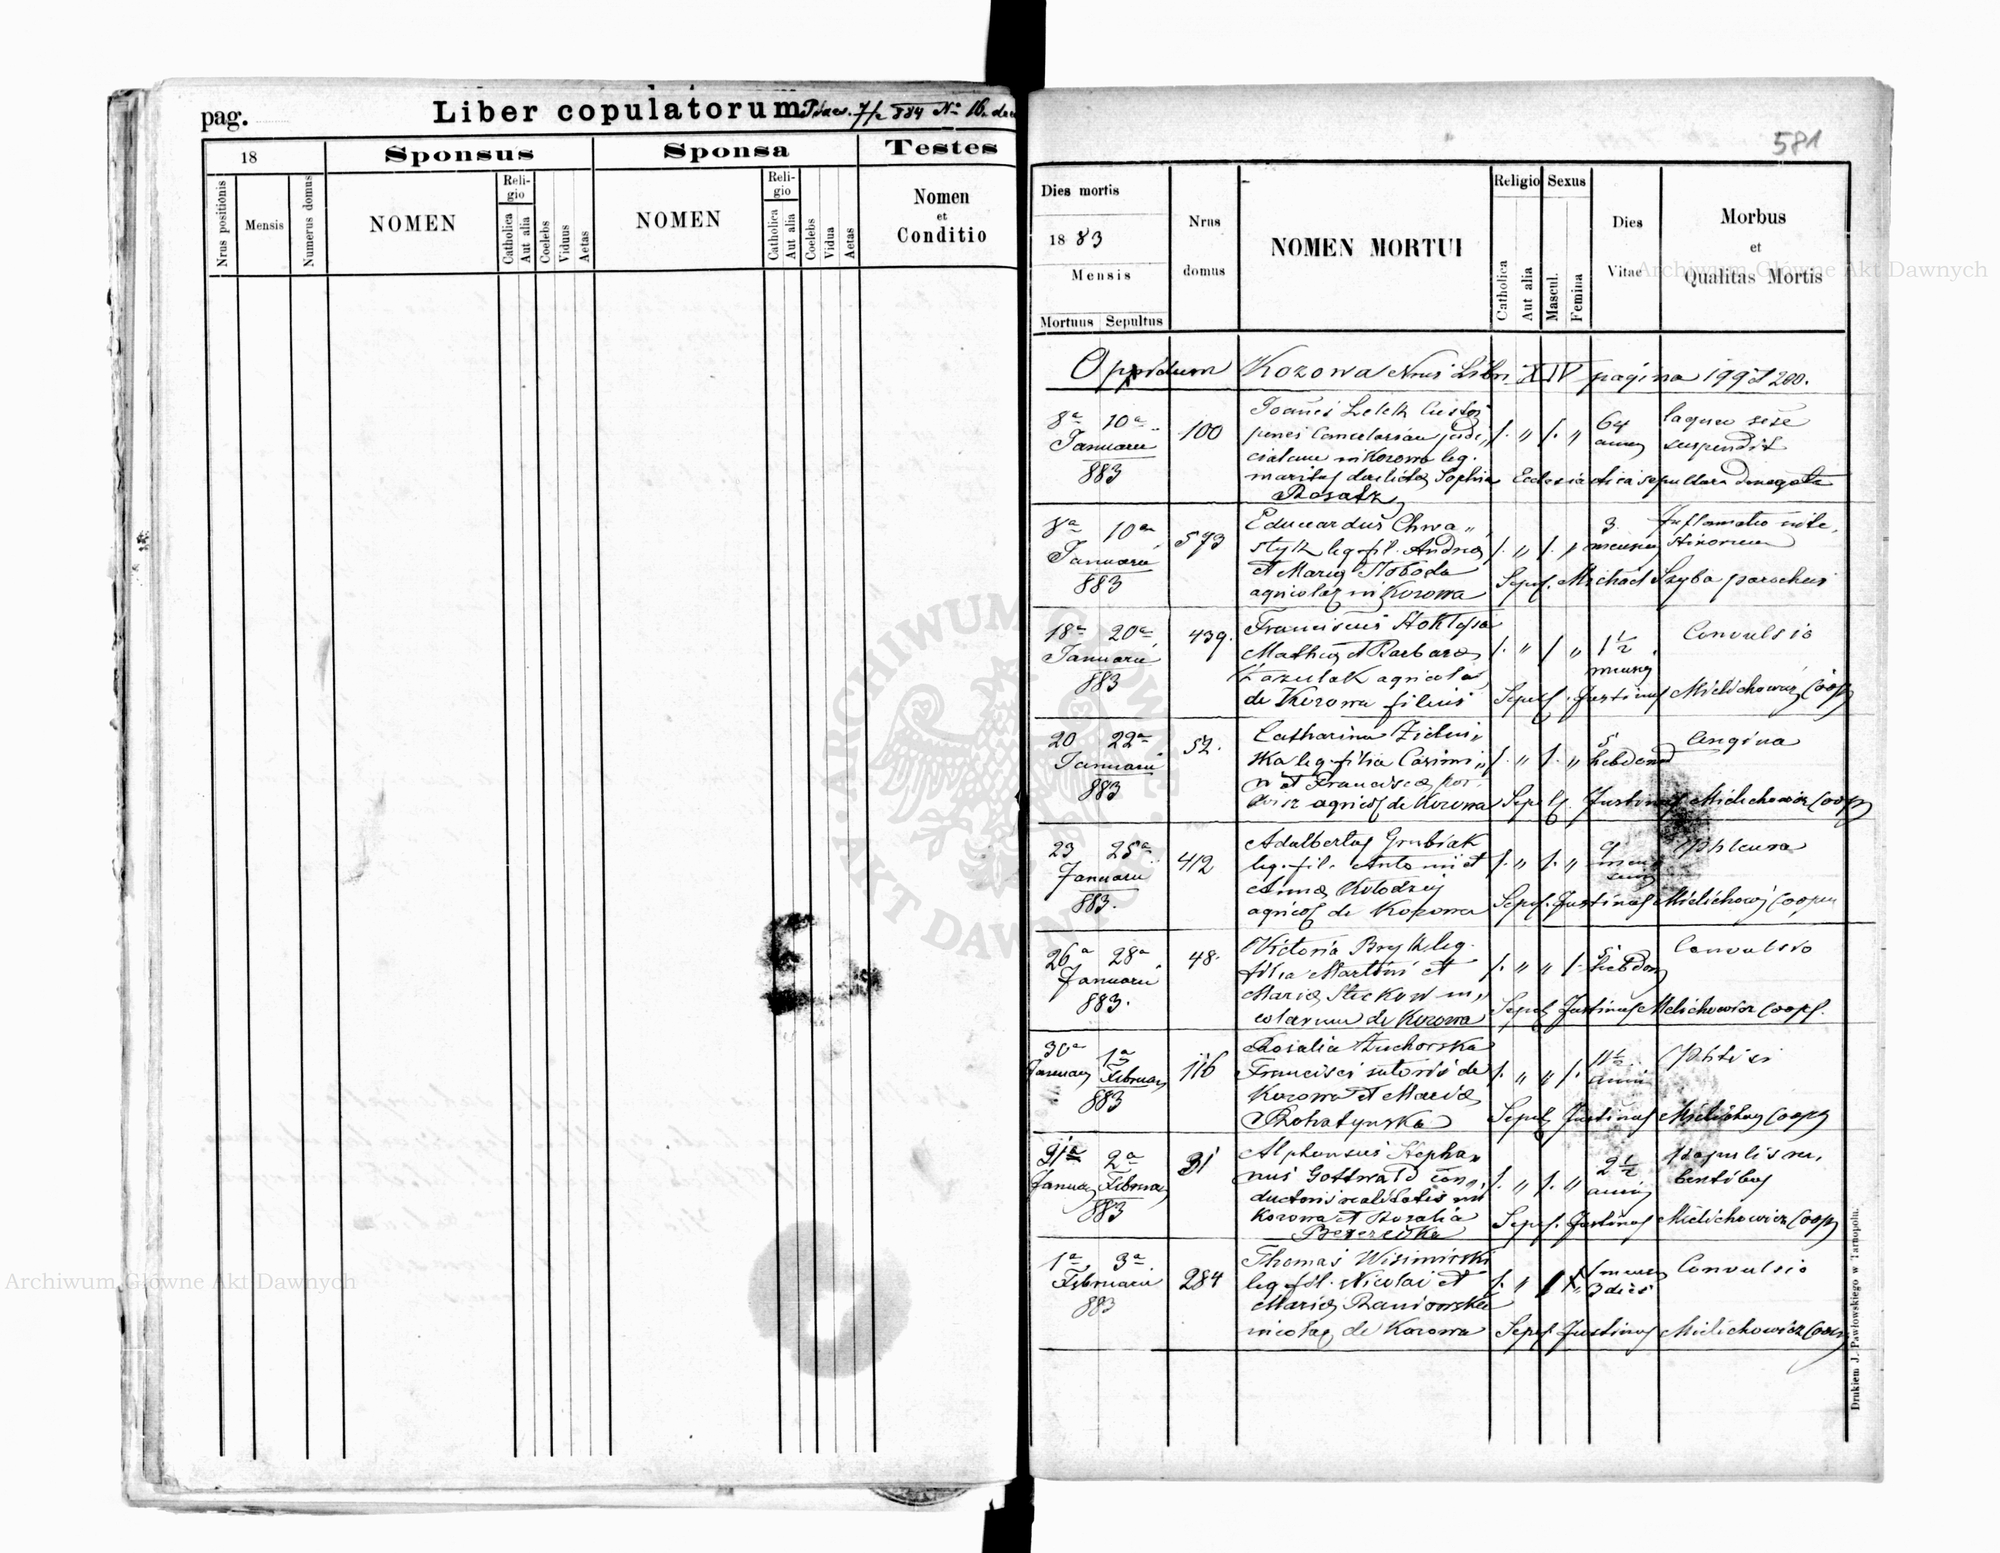 pag.
Liber copulatorum
884 No 16.
18
Sponsus
Sponsa
Testes
Nrus positionis
Mensis
Numerus domus
NOMEN
Religio
Catholica
Aut alia
Coelebs
Viduus
Aetas
NOMEN
Religio
Catholica
Aut alia
Coelebs
Vidua
Aetas
Nomen
et
Conditio
581
Dies mortis
1883
Mensis
Mortuus Sepultus
Nrus
domus
NOMEN MORTUI
Religio
Catholica
Aut alia
Sexus
Mascul.
Femina
Dies
Vitae
Morbus
et
Qualitas Mortis
Oppidum Kozowa Nrus Libri XIV pagina 199 et 200.
8a 10a
Januarii
883
100
penes Cancelariam judi„
cialem in Kozowa leg.
maritus Sophia
64
laqueo sese
suspendit
Ecclesiastica sepultura denegata
8a 10a
Januarii
883
573
Eduardus Chwa„
styk leg. fil. Andreae
et Mariae Sloboda
agricolae in Kozowa
3
mensium
Inflamatio inte„
stinorum
Sepel. Michael Szyba parochus
18a 20a
Januarii
883
439.
Franciscus Stoklosa
Mathei et Barbarae
agricolae
de Kozowa filius
1 1/2
Convulsio
Sepel. Justinus Mielichowicz Coop
20 22a
Januarii
883
52.
Catharina Zielin„
ska leg. filia Casimi„
ri et Franciscae
agricol de Kozowa
5
hebdom
Angina
Sepel. Justinus Mielichowicz Coop
23 25a
Januarii
883.
412
Adalbertus Grubiak
leg. fil. Antonii et
Annae Kolodziej
agricol de Kozowa
Sepel. Justinus Coop
26a 28a
Januarii
883.
48.
Victoria Bryk leg.
filia Martini et
Mariae Steckow in„
colarum de Kozowa
5
hebdom
Convulsio
Sepel Justinus Mielichowicz Coop.
30a 1a
Januar Februar
883
116
Rosalia Zuchorska
Francisci sutoris de
Kozowa et Mariae
Rohatynska
Phtisi
Sepel Justinus Coop
31a 2a
Januar Februar
883
31
Alphonsus Stepha„
nus Gottwald con„
ductoris realitatis in
Kozowa et Rosalia
2 1/2
Sepel. Justinus Mielichowicz Coop
1a 3a
Februarii
883
284
Thomas Wisimirski
leg. fil. Nicolai et
Mariae
incolae de Kozowa
3 dies
Convulsio
Sepel Justinus Mielichowicz Coop
Drukiem J. Pawłowskiego w Tarnopolu.
Archiwum Główne Akt Dawnych
Archiwum Główne Akt Dawnych
ARCHIWUM GŁÓWNE
AKT DAWNYCH